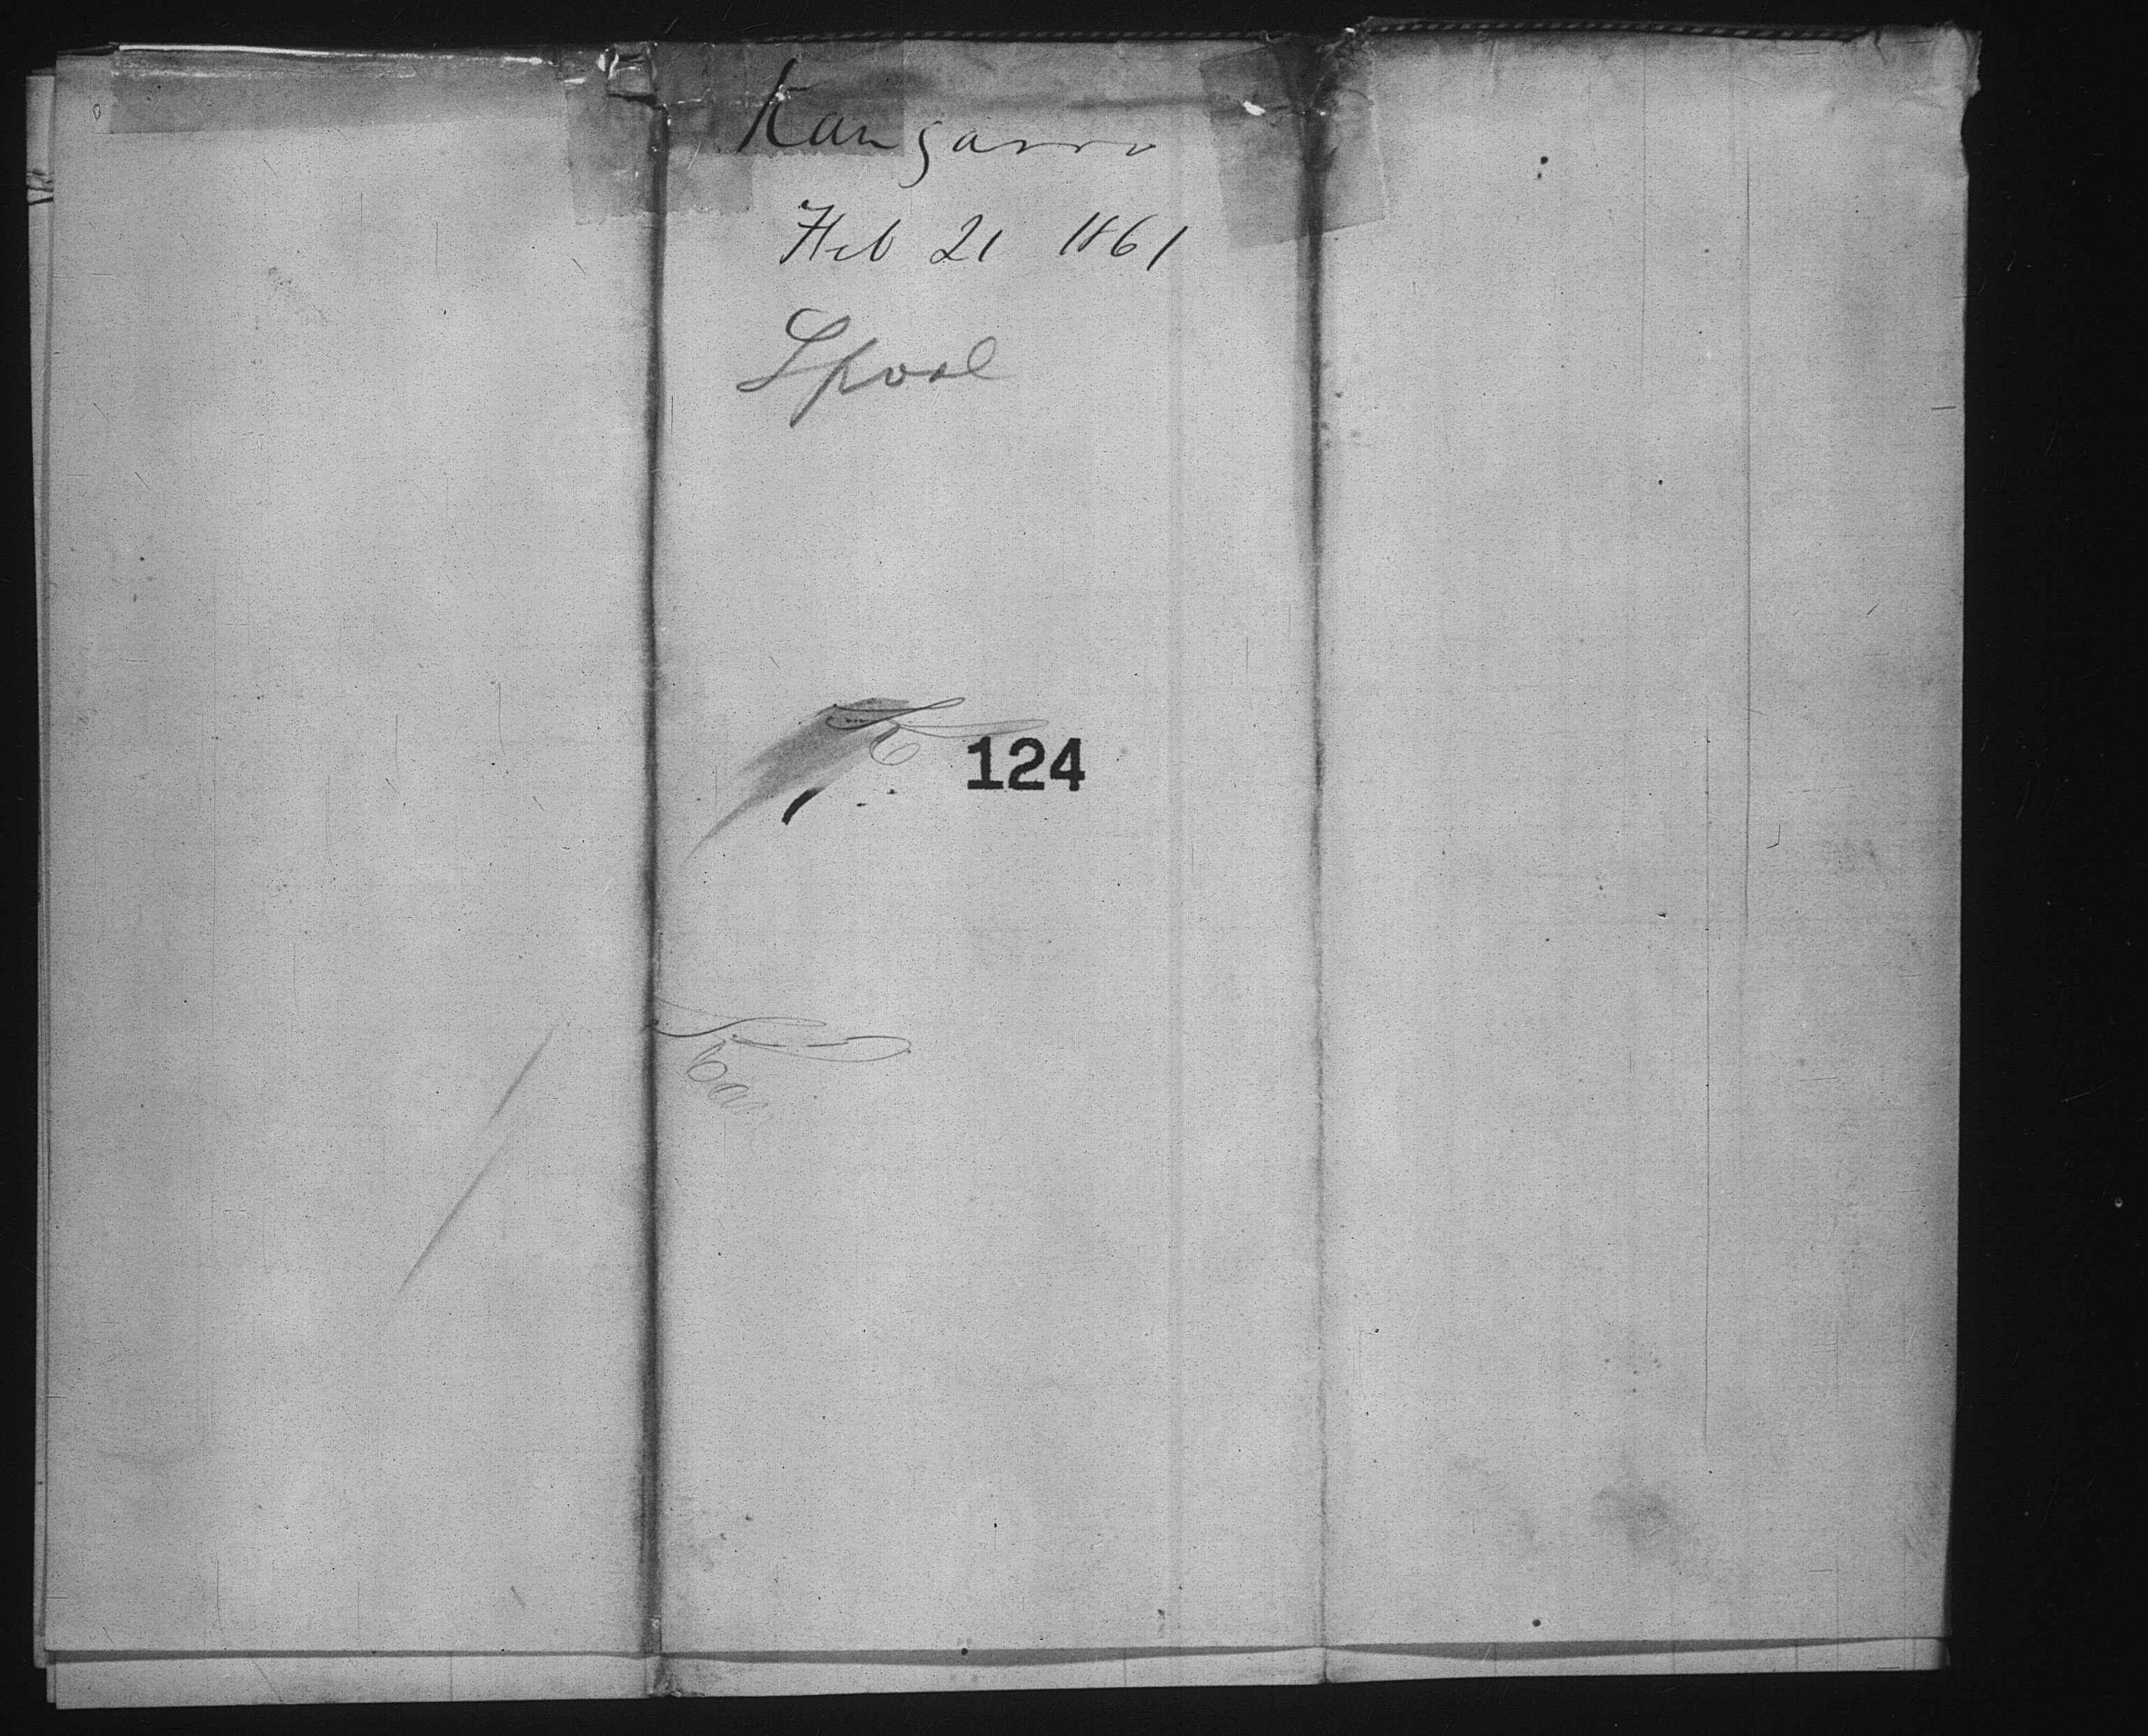 Kangaroo
Feb 21 1861
Lpool
124